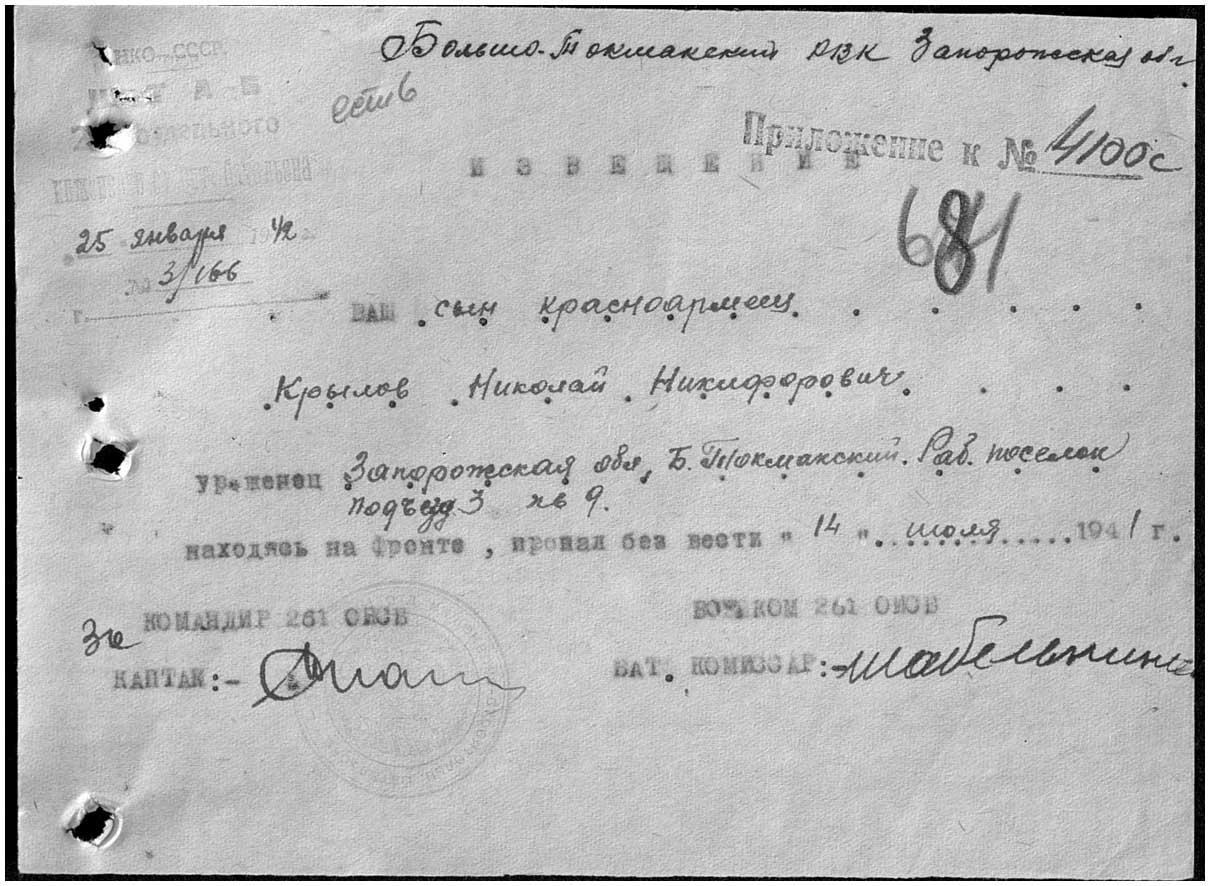 Больше-Токмакский РВК Запорожская обл.
НКО-СССР
ШТАБ
есть
Приложение к № 4100с
ИЗВЕЩЕНИЕ
681
25 января 42
№ 3/166
г.
ВАШ сын красноармеец
Крылов Николай Никифорович
уроженец Запорожская обл, Б. Токмакский. Раб. поселок
подъезд 3 кв 9.
находясь на фронте, пропал без вести "14" июля 1941 г.
КОМАНДИР 261 ОИСБ
ВОЕНКОМ 261 ОИСБ
За
КАПТАН:-
БАТ. КОМИССАР:-